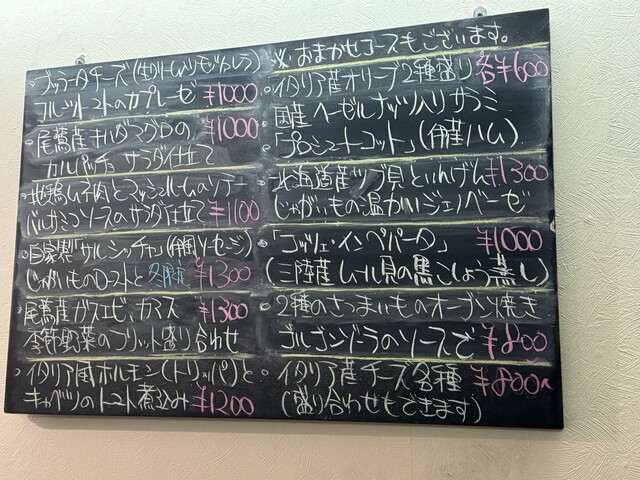 ・ブッラータチーズ(生クリーム入りモッツァレラ)
フルーツトマトのカプレーゼ ¥1000
・尾鷲産キハダマグロの ¥1000
カルパッチョ サラダ仕立て
・地鶏ムネ肉とマッシュルームのソテー
バルサミコソースのサラダ仕立て ¥1100
・自家製「サルシッチャ」(ソーセージ)
じゃがいものローストと ¥1300
・尾鷲産ガスエビ、カマス ¥1300
季節野菜のフリット盛り合わせ
・イタリア風ホルモン(トリッパ)と
キャベツのトマト煮込み ¥1200
※ おまかせコースもございます。
・イタリア産オリーブ2種盛り 各¥600
国産ヘーゼルナッツ入りサラミ
「プロシュートコット」(産ハム)
・北海道産ツブ貝といんげん ¥1300
じゃがいもの温かいジェノベーゼ
・「コッツェ・インペパータ」 ¥1000
(三陸産ムール貝の黒こしょう蒸し)
・2種のさつまいものオーブン焼き
ゴルゴンゾーラのソースで ¥800
・イタリア産チーズ各種 ¥800〜
(盛り合わせもできます)